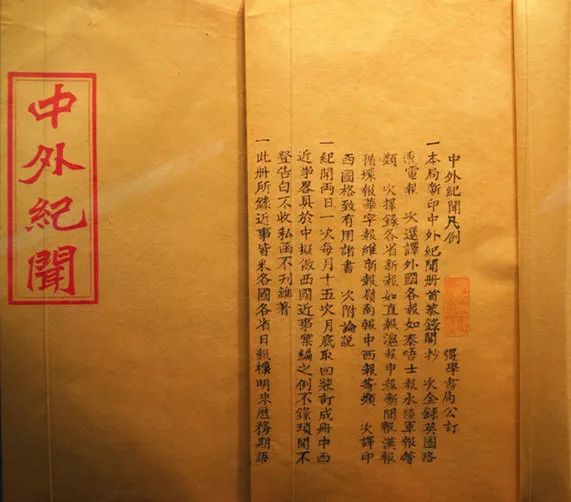 中外紀聞
中外紀聞凡例
學書局公訂
一本局新印中外紀聞册首恭錄閣抄 次全錄英國路
透電報 次選譯外國各報如泰晤士報水陸軍報等
類 次擇錄各省新報如直報滬報申報新聞報漢報
循環報華字報維新報嶺南報中西報等類 次譯印
西國格致有用諸書 次附論說
一紀聞兩日一次每月十五次月底取回裝訂成册中西
近事畧具於中擬倣西國近事彙編之例不錄瑣聞不
登告白不收私函不刊雜著
一此册所錄近事皆采各國各省日報標明來歷務期語